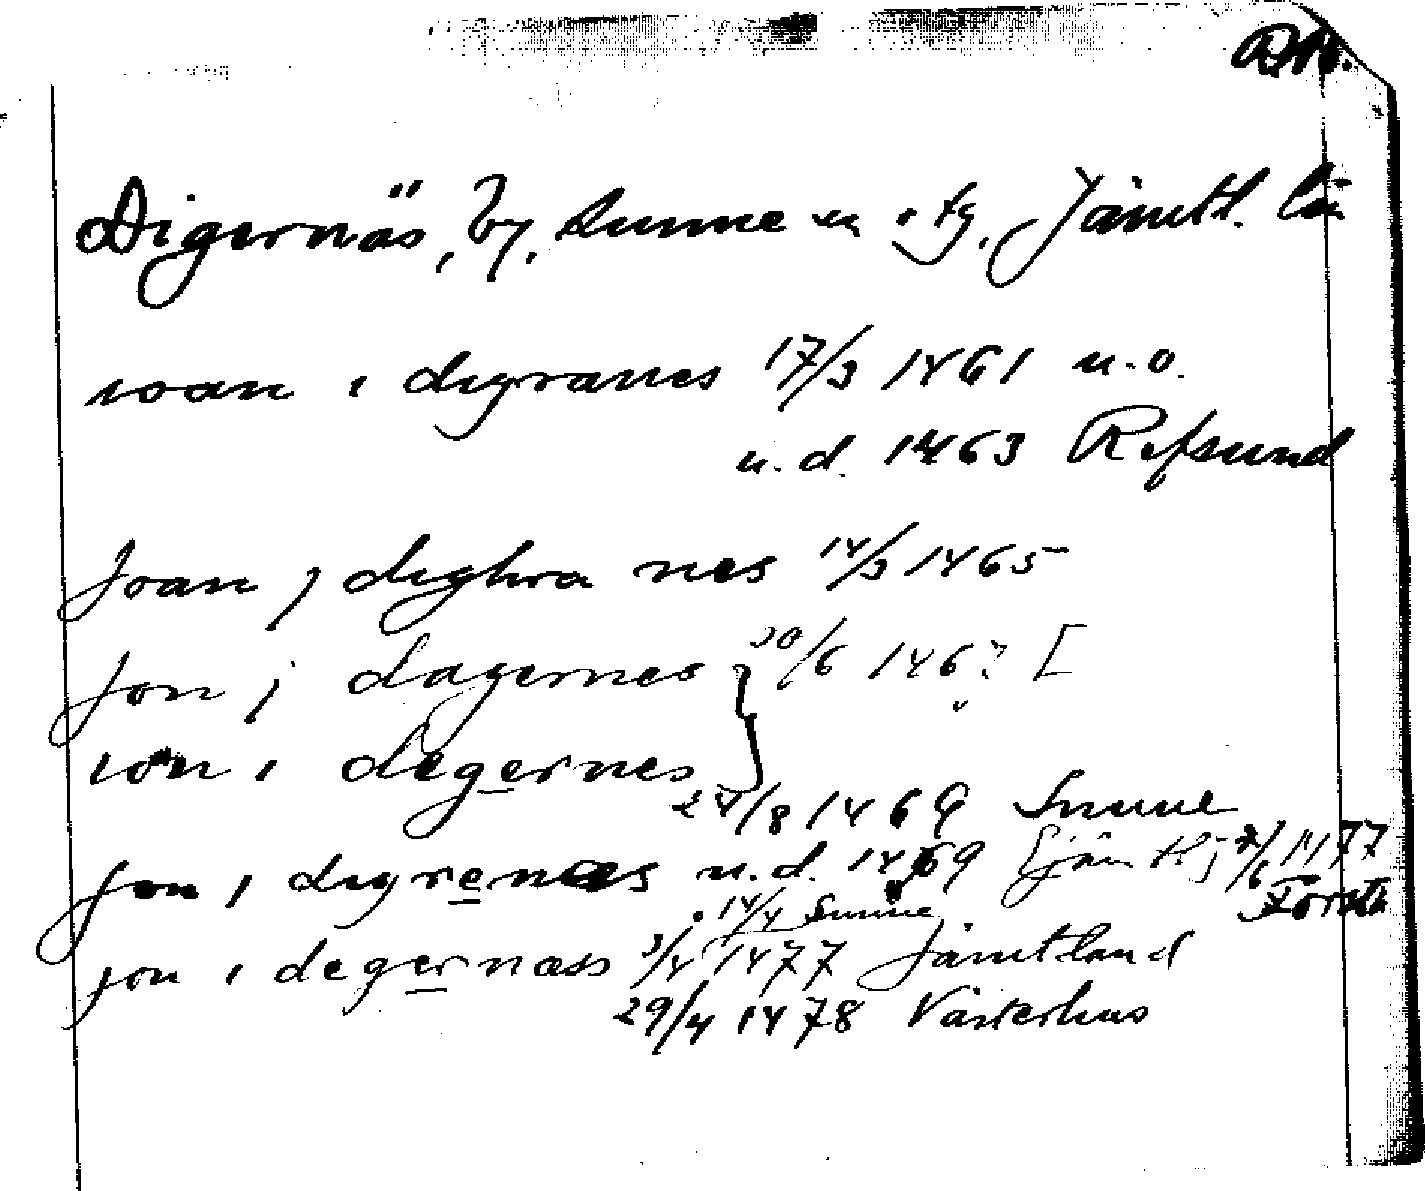 Digernäs, by, Sunne sn o. tg, Jämtl. län
ioan i digranes 17/3 1461 n.o.
u.d. 1463 Refsund
Joan j dighra nes 14/3 1465
Jon j dagernes 20/6 146? [
ion i degernes
24/8 1469 Sunne
Jon i digrenæs u.d. 1469
14/4 Sunne
jon i degernæss 3/4 1477 Jämtland
29/4 1478 Västerhus